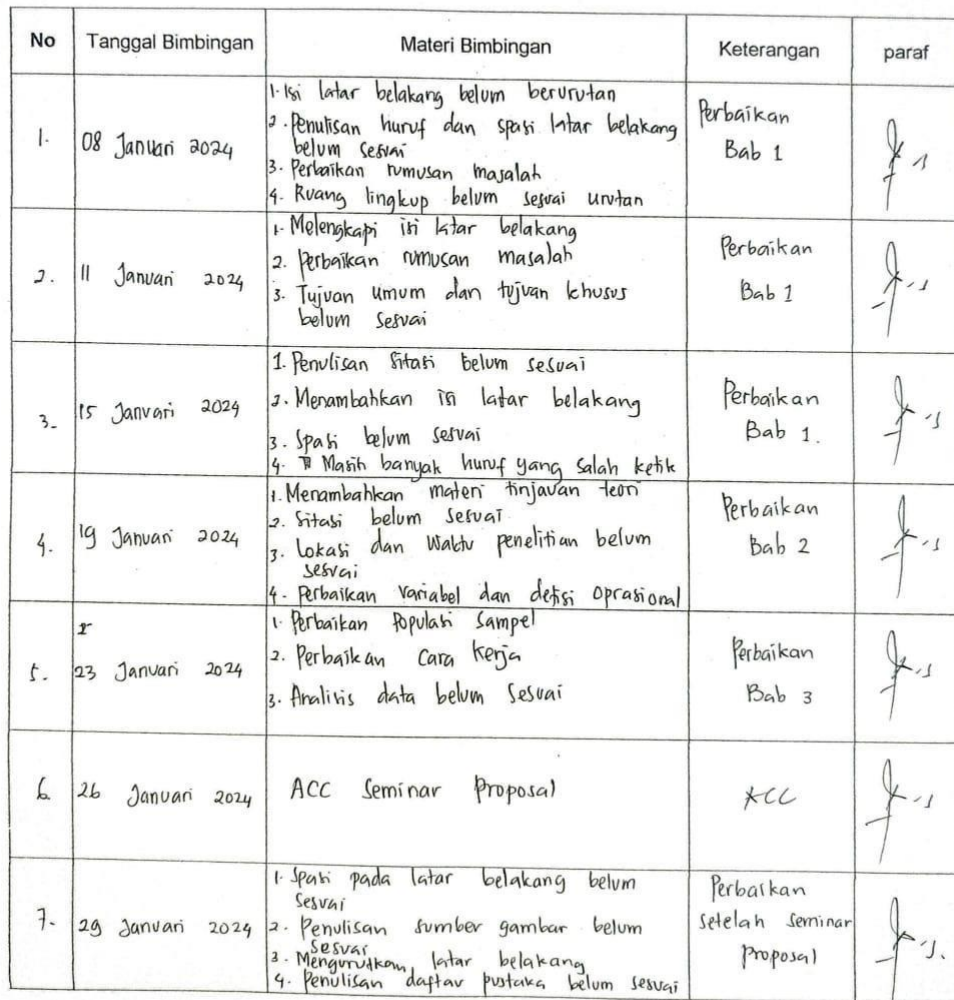 No Tanggal Bimbingan Materi Bimbingan Keterangan paraf
1. 08 Januari 2024
1. Isi latar belakang belum berurutan
2. Penulisan huruf dan spasi latar belakang
belum sesuai
3. Perbaikan rumusan masalah
4. Ruang lingkup belum sesuai urutan
Perbaikan
Bab 1
2. 11 Januari 2024
1. Melengkapi isi latar belakang
2. Perbaikan rumusan masalah
3. Tujuan umum dan tujuan khusus
belum sesuai
Perbaikan
Bab 1
3. 15 Januari 2024
1. Penulisan sitasi belum sesuai
2. Menambahkan isi latar belakang
3. Spasi belum sesuai
4. Masih banyak huruf yang salah ketik
Perbaikan
Bab 1.
4. 19 Januari 2024
1. Menambahkan materi tinjauan teori
2. Sitasi belum sesuai
3. Lokasi dan Waktu penelitian belum
sesuai
4. Perbaikan variabel dan defisi oprasional
Perbaikan
Bab 2
5. 23 Januari 2024
1. Perbaikan Populasi Sampel
2. Perbaikan Cara Kerja
3. Analisis data belum Sesuai
Perbaikan
Bab 3
6. 26 Januari 2024
ACC Seminar Proposal
ACC
7. 29 Januari 2024
1. Spasi pada latar belakang belum
sesuai
2. Penulisan sumber gambar belum
sesuai
3. Mengurutkan latar belakang
4. Penulisan daftar pustaka belum sesuai
Perbaikan
setelah seminar
Proposal